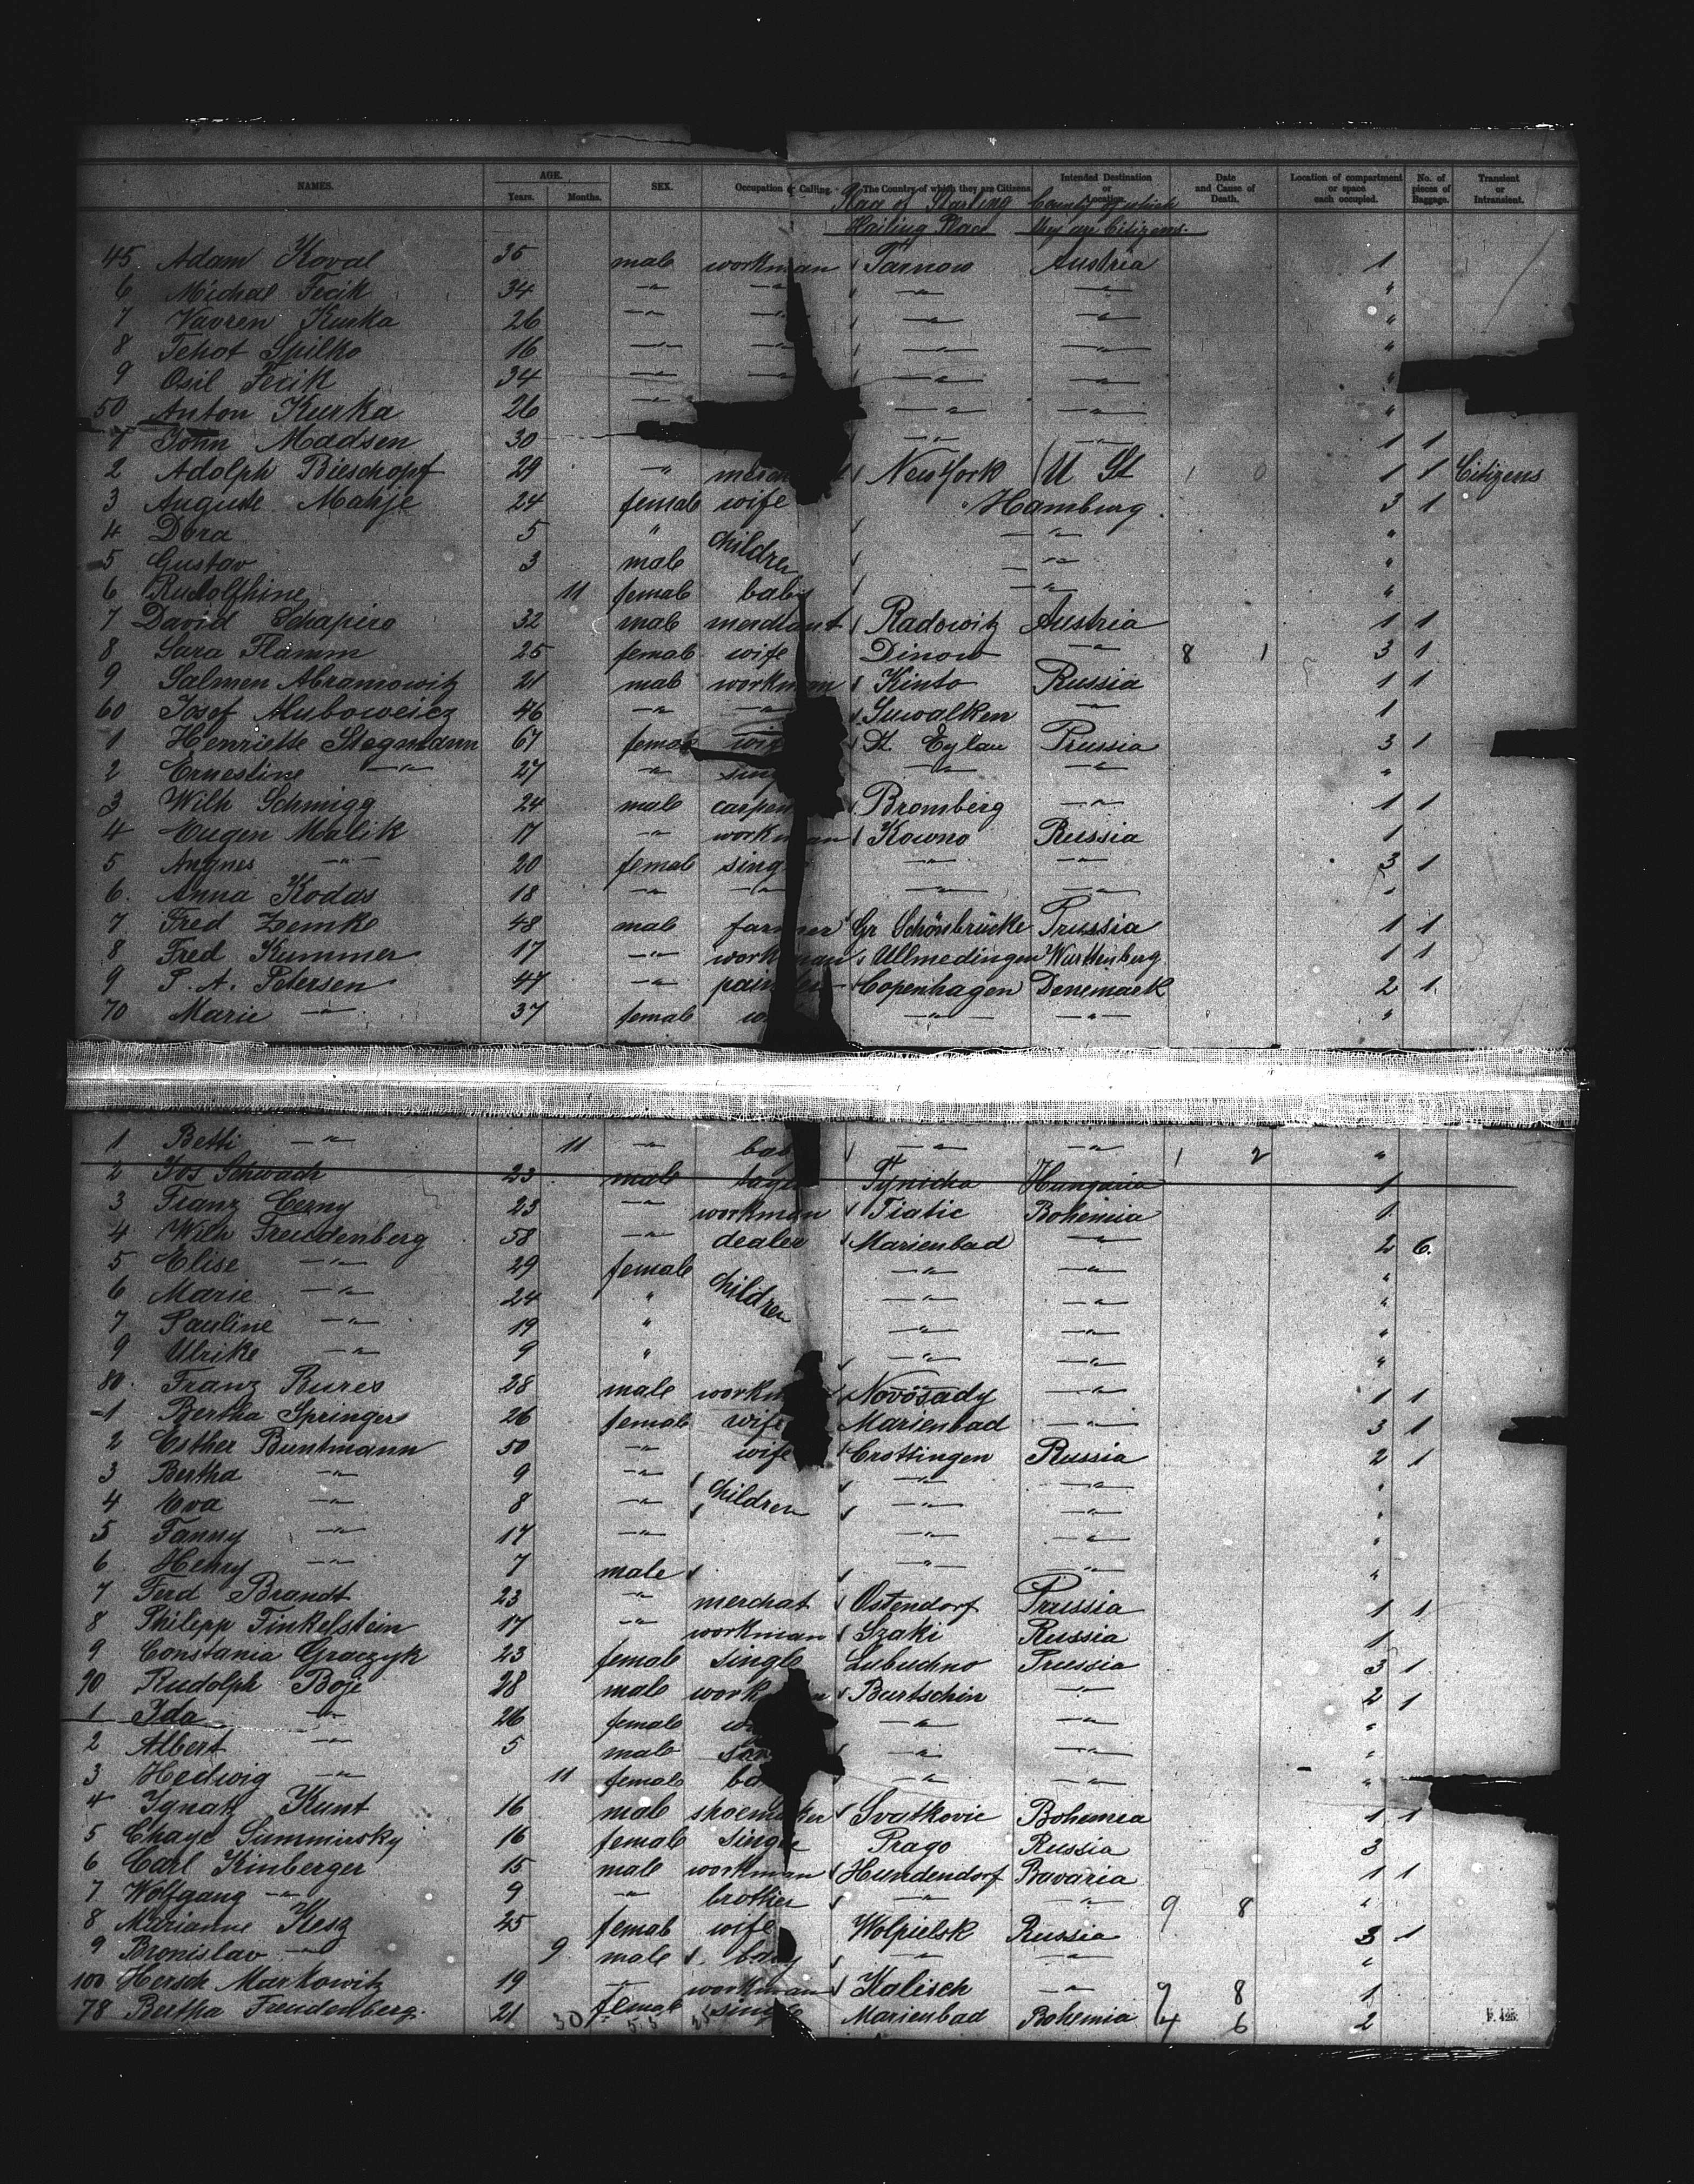 NAMES. AGE. Years. Months. SEX. Occupation or Calling. The Country of which they are Citizens. Intended Destination or Location. Date and Cause of Death. Location of compartment or space each occupied. No. of pieces of Baggage. Transient or Intransient.
Place of Starting County of which
Hailing Place they are Citizens.
45 Adam Koval 35 male workman Tarnow Austria 1
6 Michal Fecik 34 —"— —"— —"— —"— "
7 Vavren Kurka 26 —"— —"— —"— —"— "
8 Tehot Spilko 16 —"— —"— —"— —"— "
9 Osil Fecik 34 —"— —"— —"— —"— "
50 Anton Kurka 26 —"— —"— —"— "
1 John Madsen 30 —"— —"— 1 1
2 Adolph Bieschopf 29 —"— New York U St 1 0 1 1 Citizens
3 Auguste Mahje 24 female wife Hamburg 3 1
4 Dora 5 " children —"— "
5 Gustav 3 male —"— "
6 Rudolfhine 11 female baby —"— "
7 David Schapiro 32 male merchant Radowitz Austria 1 1
8 Sara Flamm 25 female wife Dinow —"— 8 1 3 1
9 Salmen Abramowitz 21 male workman Kinto Russia 1 1
60 Josef Aluboweicz 46 —"— —"— Suwalken —"— 1
1 Henriette Stegmann 67 female St. Eylau Prussia 3 1
2 Ernestine —"— 27 —"— —"— —"— "
3 Wilh Schmigg 24 male Bromberg —"— 1 1
4 Eugen Malik 17 —"— workman Kowno Russia 1
5 Angnes —"— 20 female —"— —"— 3 1
6. Anna Kodas 18 —"— —"— —"— —"— "
7 Fred Zemke 48 male farmer Gr Schönbrücke Prussia 1 1
8 Fred Kummer 17 —"— workman Ullmedingen Württenberg 1 1
9 P. A. Petersen 47 —"— Copenhagen Denemark 2 1
70 Marie —"— 37 female —"— —"— "
1 Betti —"— 11 —"— —"— —"— 1 2 "
2 Jos Schwach 23 male Tynicha Hungaria 1
3 Franz Cerny 23 —"— workman Tiatic Bohemia 1
4 Wilh Freudenberg 58 —"— dealer Marienbad —"— 2 6.
5 Elise —"— 29 female —"— —"— "
6 Marie —"— 24 " children —"— —"— "
7 Pauline —"— 19 " —"— —"— "
9 Ulrike —"— 9 " —"— —"— "
80. Franz Bures 28 male Novosady —"— 1 1
1 Bertha Springer 26 female wife Marienbad —"— 3 1
2 Esther Buntmann 50 —"— wife Crottingen Russia 2 1
3 Bertha —"— 9 —"— —"— —"— "
4 Eva —"— 8 —"— children —"— —"— "
5 Fanny —"— 17 —"— —"— —"— "
6 Henry —"— 7 male —"— —"— "
7 Ferd Brandt 23 —"— merchat Ostendorf Prussia 1 1
8 Philipp Finkelstein 17 —"— workman Szaki Russia 1
9 Constania Graczyk 23 female single Lubuchno Prussia 3 1
90 Rudolph Boje 28 male Burtschin —"— 2 1
1 Ida —"— 26 female —"— —"— "
2 Albert —"— 5 male —"— —"— "
3 Hedwig —"— 11 female —"— —"— "
4 Ignatz Kunt 16 male shoemaker Svatkovic Bohemea 1 1
5 Chaye Summirsky 16 female single Prago Russia 3
6 Carl Kinberger 15 male workman Hundendorf Bavaria 1 1
7 Wolfgang —"— 9 —"— brother —"— —"— 9 8 "
8 Marianne Kesz 25 female wife Wolpielsk Russia 3 1
9 Bronislav —"— 9 male baby —"— —"— "
100 Hersch Markowitz 19 —"— workman Kalisch —"— 9 8 1
78 Bertha Freudenberg. 21 female single Marienbad Bohemia 4 6 2
30 55